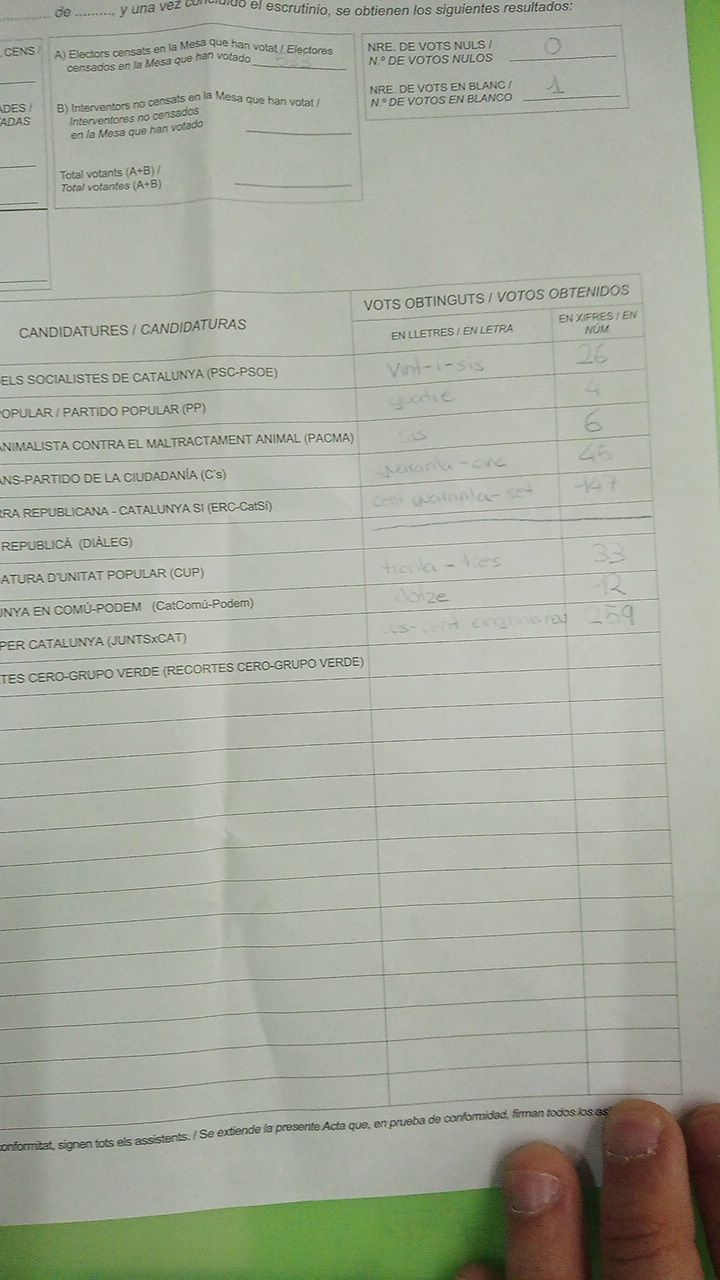 de ........., y una vez concluido el escrutinio, se obtienen los siguientes resultados:
CENS /
A) Electors censats en la Mesa que han votat / Electores
censados en la Mesa que han votado
NRE. DE VOTS NULS /
N.º DE VOTOS NULOS 0
ADES /
ADAS
B) Interventors no censats en la Mesa que han votat /
Interventores no censados
en la Mesa que han votado
NRE. DE VOTS EN BLANC /
N.º DE VOTOS EN BLANCO 1
Total votants (A+B) /
Total votantes (A+B)
CANDIDATURES / CANDIDATURAS
VOTS OBTINGUTS / VOTOS OBTENIDOS
EN LLETRES / EN LETRA
EN XIFRES / EN
NÚM.
ELS SOCIALISTES DE CATALUNYA (PSC-PSOE) Vint-i-sis 26
OPULAR / PARTIDO POPULAR (PP) quatre 4
ANIMALISTA CONTRA EL MALTRACTAMENT ANIMAL (PACMA) sis 6
ANS-PARTIDO DE LA CIUDADANÍA (C's) quaranta-cinc 45
RRA REPUBLICANA - CATALUNYA SI (ERC-CatSí) cent quaranta-set 147
REPUBLICÀ (DIÀLEG)
ATURA D'UNITAT POPULAR (CUP) trenta-tres 33
UNYA EN COMÚ-PODEM (CatComú-Podem) dotze 12
PER CATALUNYA (JUNTSxCAT) dos-cent cinquantanou 259
TES CERO-GRUPO VERDE (RECORTES CERO-GRUPO VERDE)
conformitat, signen tots els assistents. / Se extiende la presente Acta que, en prueba de conformidad, firman todos los as